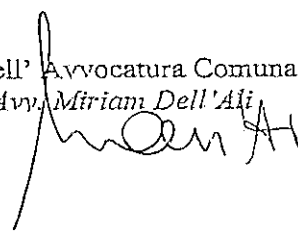 ell' Avvocatura Comuna
Avv. Miriam Dell'Ali